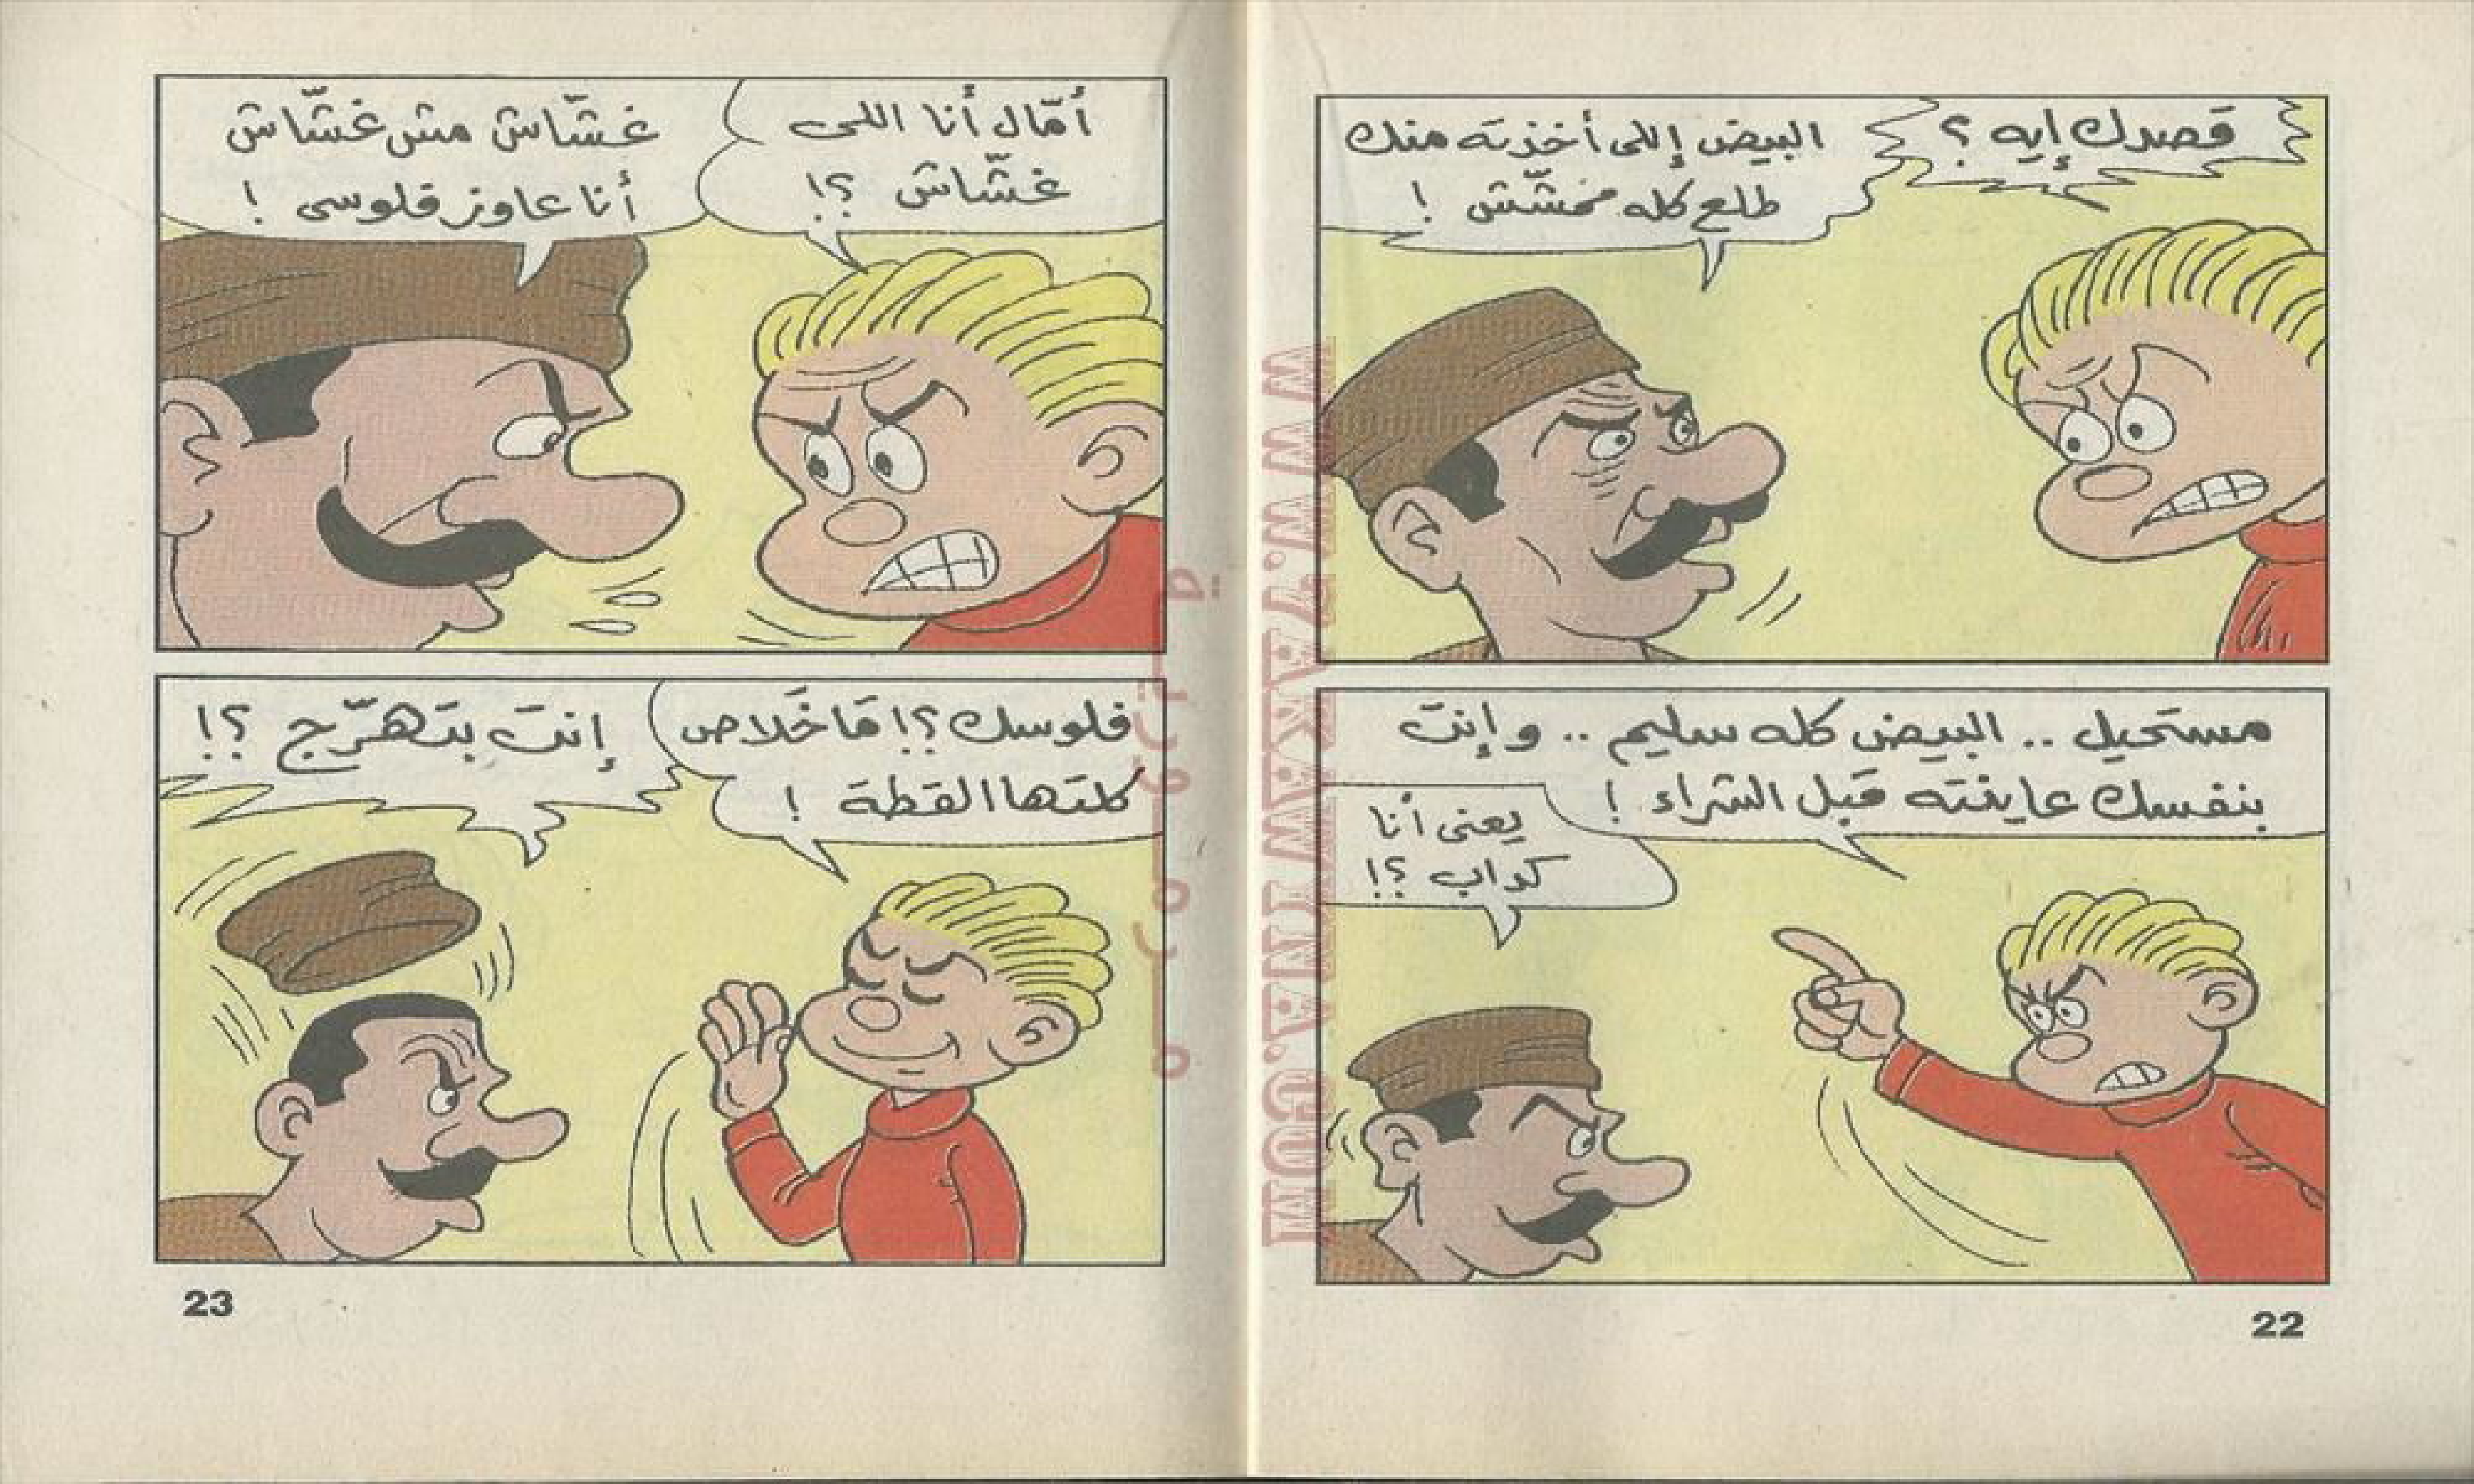 قصدك إيه ؟
البيض إللى أخذته منك
طلع كله ممشّش !
مستحيل .. البيض كله سليم .. وإنت
بنفسك عاينته قبل الشراء !
يعنى أنا
كداب ؟!
22
أمّال أنا اللى
غشّاش ؟!
غشّاش مش غشّاش
أنا عاوز فلوسى !
فلوسك ؟! مَا خَلاص
كلتها القطة !
إنت بتهرّج ؟!
23
WWW.ARABCOMICS.NET